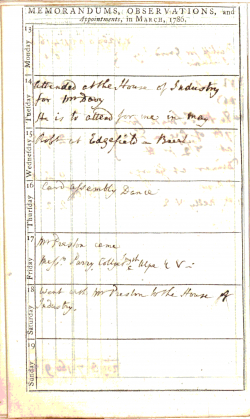 MEMORANDUMS, OBSERVATIONS, and
Appointments, in MARCH, 1786.
13
Monday
14
Tuesday
Attended at the House of Industry
for Mr Davy
He is to attend for me in May
15
Wednesday
at Edgefield
16
Thursday
Card assembly Dance
17
Friday
Mr Preston came
Parry, &
18
Saturday
Went with Mr Preston to the House of
Industry.
19
Sunday